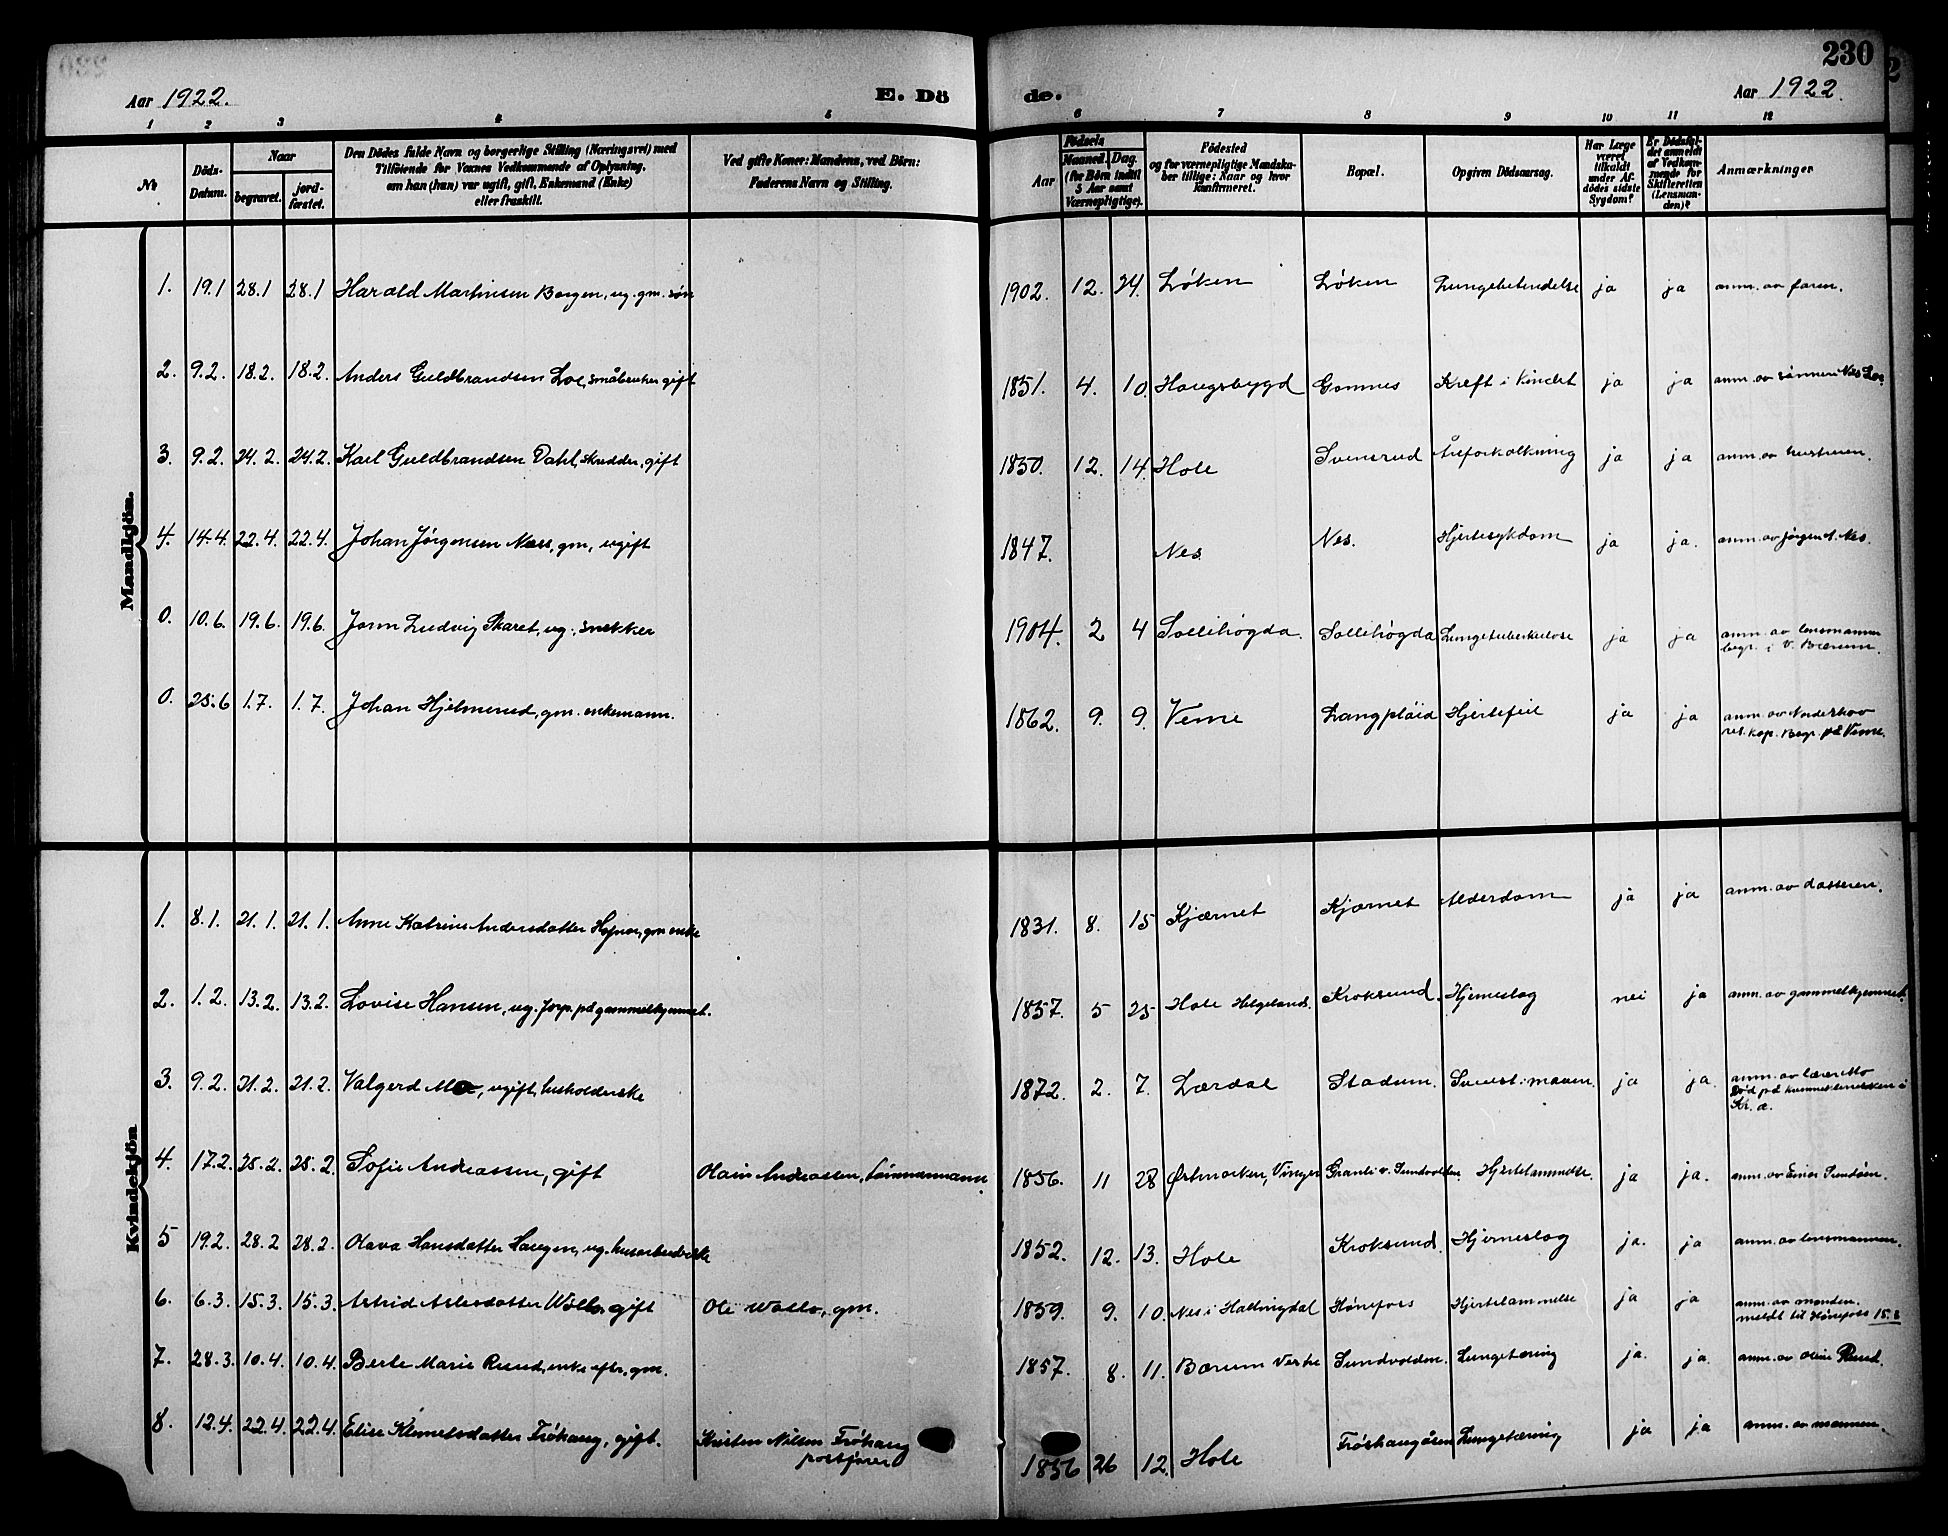 230
Aar 1922. E. Dö de. Aar 1922.
1 2 3 4 5 6 7 8 9 10 11 12
№
Döds-Datum.
Naar
begravet.
jord-fæstet.
Den Dödes fulde Navn og borgerlige Stilling (Næringsvei) med
Tilföiende for Voxnes Vedkommende af Oplysning,
om han (hun) var ugift, gift, Enkemand (Enke)
eller fraskilt.
Ved gifte Koner: Mandens, ved Börn:
Faderens Navn og Stilling.
Aar
Födsels
Maaned. Dag.
(for Börn indtil
5 Aar samt
Værnepligtige).
Födested
og for værnepligtige Mandska-
ber tillige: Naar og hvor
konfirmeret.
Bopæl.
Opgiven Dödsaarsag.
Har Læge
været
tilkaldt
under Af-
dödes sidste
Sygdom?
Er Dödsfal-
det anmeldt
af Vedkom-
mende for
Skifteretten
(Lensman-
den)?
Anmærkninger
Mandkjön.
1. 19.1 28.1 28.1 Harald Martinsen Borgen, ug. gm. søn 1902. 12. 24. Løken Løken Lungebetendelse ja ja anm. av faren.
2. 9.2. 18.2. 18.2. Anders Guldbrandsen Loe, småbruker gift 1851. 4. 10. Haugsbygd Gomnes Kreft i Vindet ja ja anm. av sønnen Nils Loe
3. 9.2. 24.2. 24.2. Karl Guldbrandsen Dahl, skredder, gift 1850. 12. 14. Hole Svensrud Åreforkalkning ja ja anm. av hustruen.
4. 14.4. 22.4. 22.4. Johan Jørgensen Næss, gm, ugift 1847. Nes. Nes. Hjertesykdom ja ja. anm. av Jørgen J. Nes.
0. 10.6. 19.6. 19.6. Jorm Ludvig Skaret, ug., snekker 1904. 2 4 Sollihøgda. Sollihøgda Lungetuberkulose ja ja anm. av lensmannen
begr. i V. Bærum.
0. 25.6 1.7. 1.7. Johan Hjelmerud, gm. enkemann. 1862. 9. 9. Veme Langpláid Hjertefeil ja ja anm. av Norderhov
res. kap. Begr. på Veme.
Kvindekjön
1. 8.1. 21.1. 21.1. Anne Katrine Andersdatter Hafnor, gm enke 1831. 8. 15 Kjærnet Kjærnet Alderdom ja ja anm. av datteren.
2. 1.2. 13.2. 13.2. Lovise Hansen, ug. forp. på gammelhjemmet. 1857. 5 25 Hole Helgeland. Kroksund. Hjerneslag nei ja anm. av gammelhjemmet.
3. 9.2. 21.2. 21.2. Valgerd Mo, ugift, husholderske 1872. 2. 7. Lærdal Stadum. Svulst i maven. ja ja. anm. av lærer Mo
Død på kvinneklinikken i
Kr.a.
4. 17.2. 25.2. 25.2. Sofie Andreassen, gift Olaus Andreassen, tømmermann. 1856. 11 28 Østmarken, Vinger Granli v. Sundvolden. Hjertelammelse. ja ja. anm. av Einar Sundøen.
5 19.2. 28.2 28.2. Olava Hansdatter Haugen, ug. husarbeiderske 1852. 12. 13. Hole Kroksund. Hjerneslag ja. ja anm. av lensmannen.
6. 6.3. 15.3. 15.3. Astrid Asle­sdatter Wollo, gift Ole Wollo, gm. 1859. 9. 10. Nes i Hallingdal Hønefoss Hjertelammelse ja ja anm. av manden.
meldt til Hønefoss 15.3
7. 28.3. 10.4. 10.4. Berte Marie Rund, enke eftr. gm. 1857. 8. 11. Bærum Vestre Sundvolden. Lungetæring ja. ja. anm. av Oline Rund.
8. 12.4. 22.4. 22.4. Elise Klemetsdatter Frøhaug, gift. Kristen Nilsen Frøhaug
postfører
1856 26 12. Hole Frøshaugåsen Lungetæring ja ja anm. av mannen